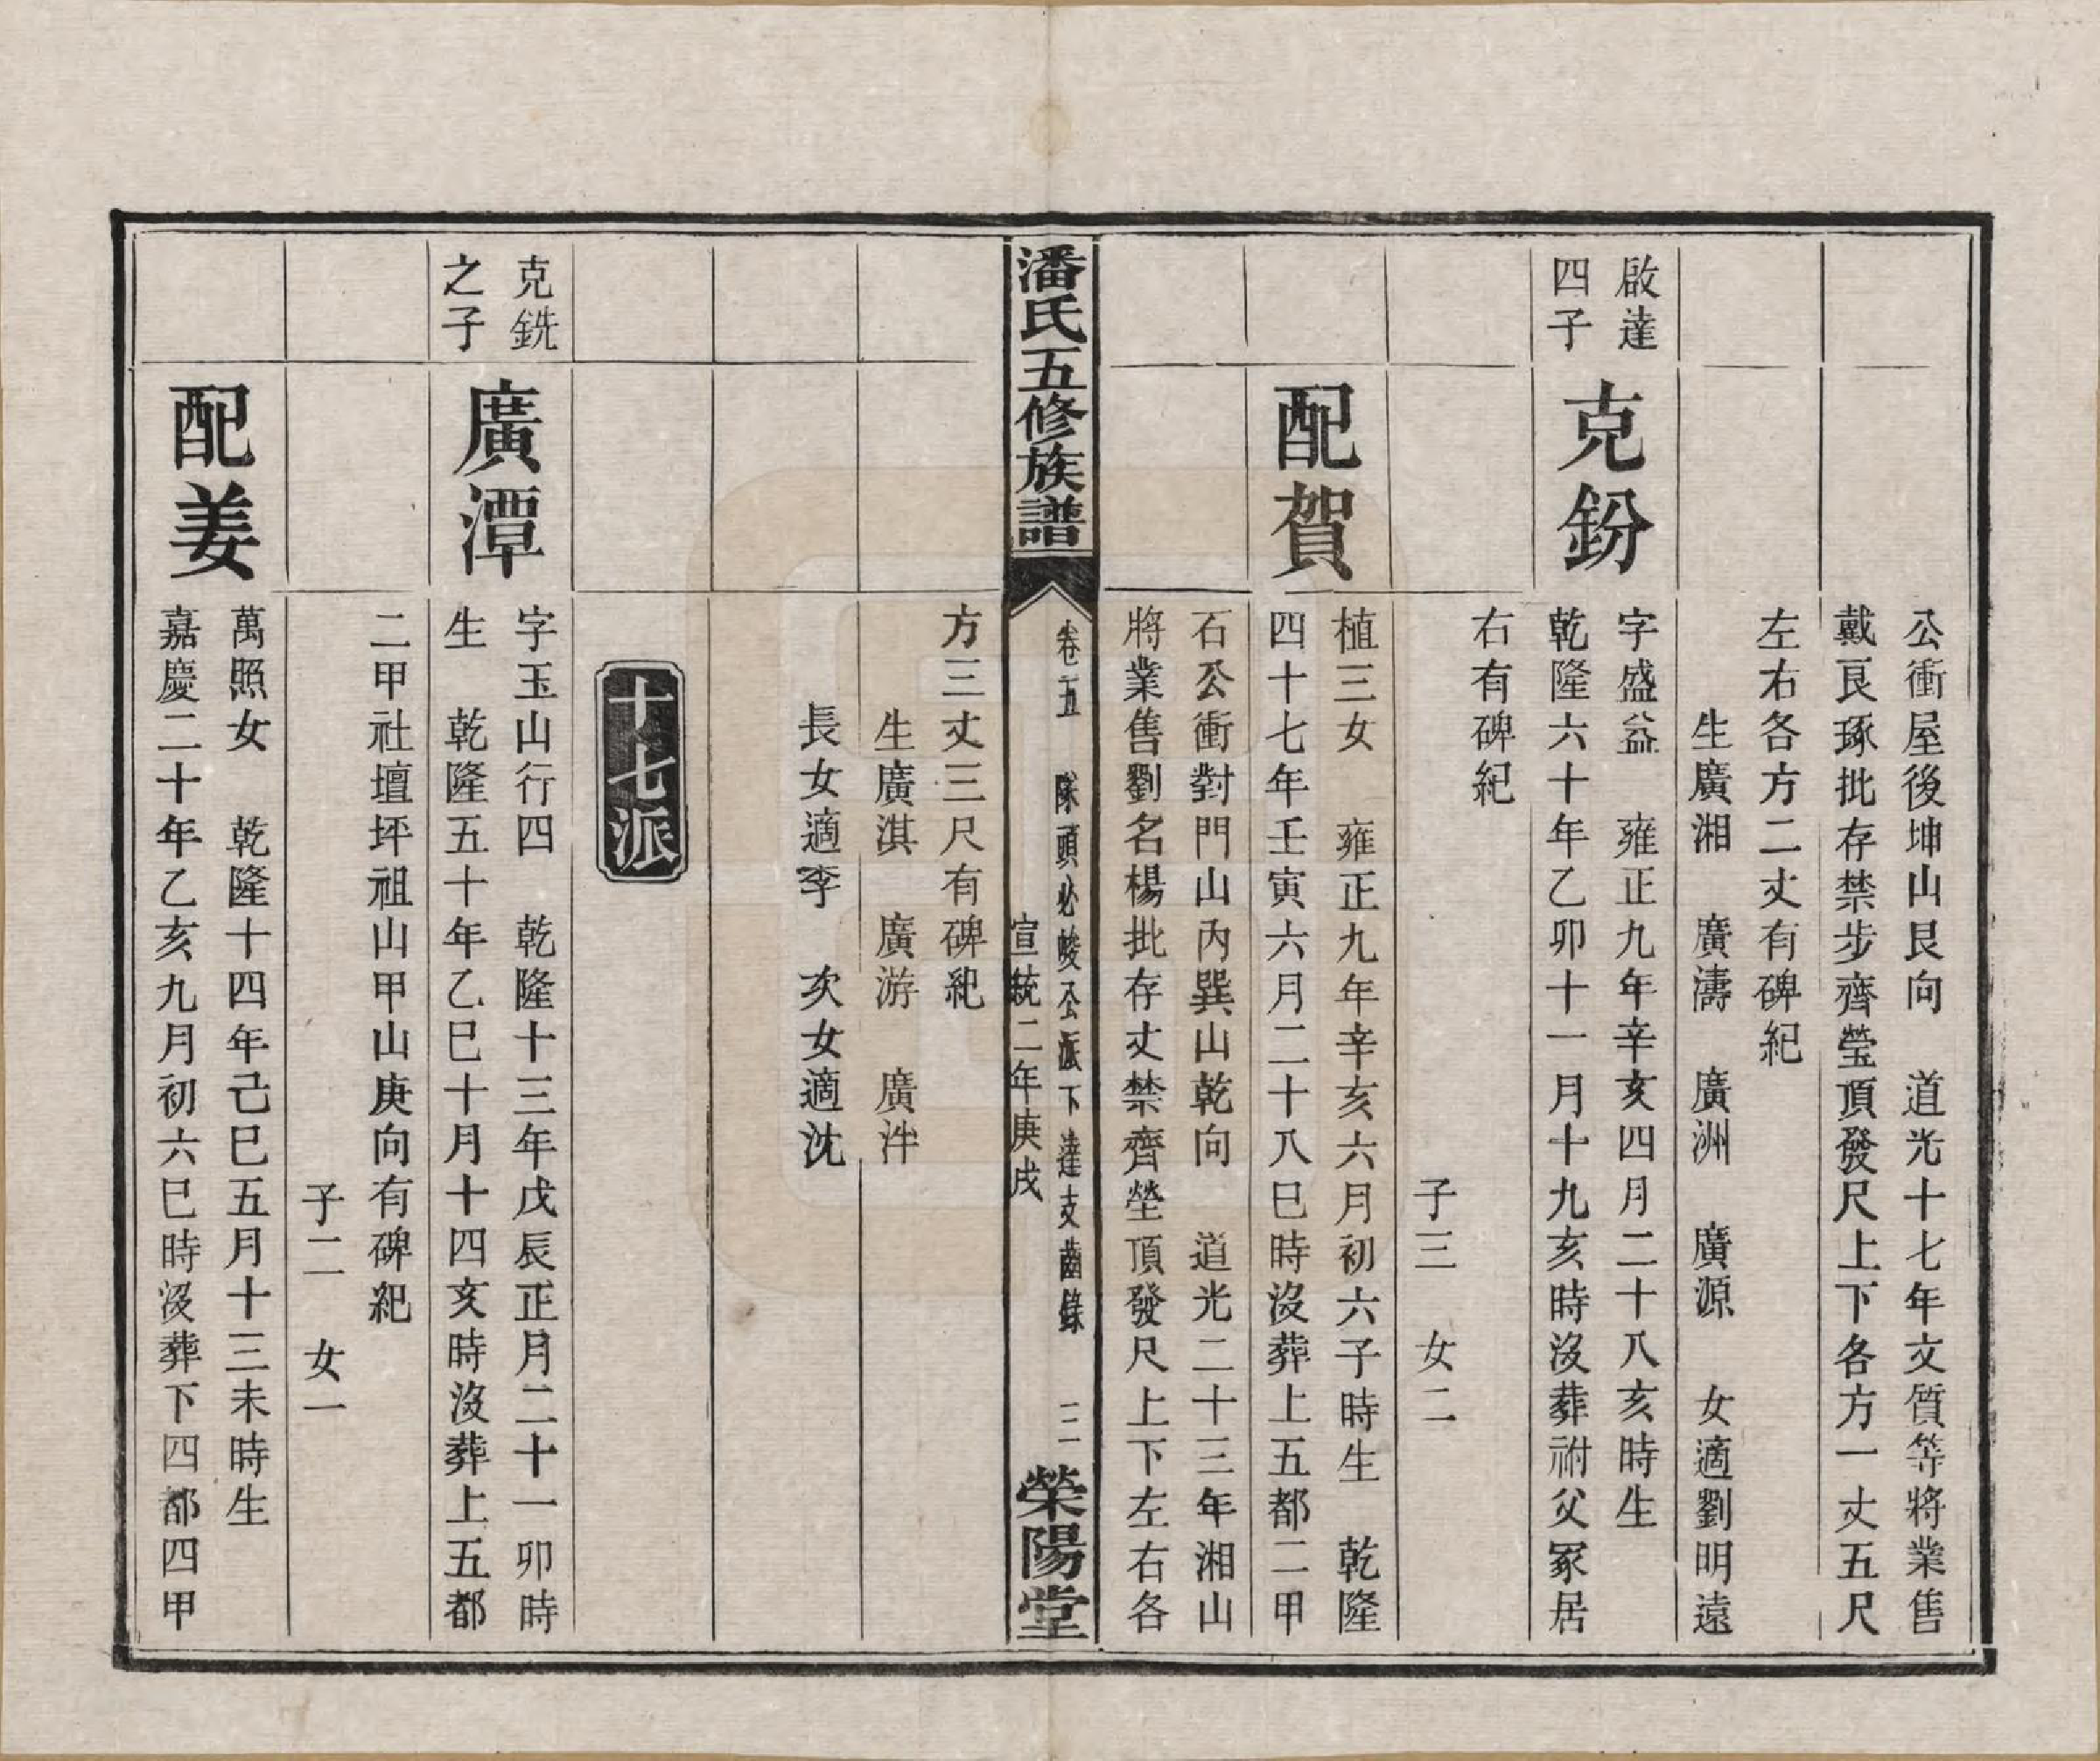 公衝屋後坤山艮向　道光十七年文質等將業售
戴艮琢批存禁步齊瑩頂發尺上下各方一丈五尺
左右各方二丈有碑紀
生廣湘　廣濤　廣洲　廣源　女適劉明遠
啟達
四子
克鈖
字盛益　雍正九年辛亥四月二十八亥時生
乾隆六十年乙卯十一月十九亥時沒葬祔父冢居
右有碑紀
子三　女二
配賀
植三女　雍正九年辛亥六月初六子時生　乾隆
四十七年壬寅六月二十八巳時沒葬上五都二甲
石公衝對門山內巽山乾向　道光二十三年湘山
將業售劉名楊批存丈禁齊塋頂發尺上下左右各
潘氏五修族譜
卷五　隊頭必峻公派下達支齒錄　三
宣統二年庚戌
榮陽堂
方三丈三尺有碑紀
生廣淇　廣游　廣泮
長女適李　次女適沈
十七派
克銑
之子
廣潭
字玉山行四　乾隆十三年戊辰正月二十一卯時
生　乾隆五十年乙巳十月十四亥時沒葬上五都
二甲社壇坪祖山甲山庚向有碑紀
子二　女一
配姜
萬照女　乾隆十四年己巳五月十三未時生
嘉慶二十年乙亥九月初六巳時沒葬下四都四甲